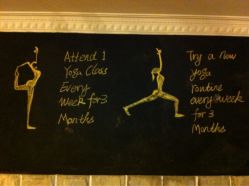 Attend 1
Yoga Class
Every
Week for 3
Months
Try a new
yoga
routine
every week
for 3
Months